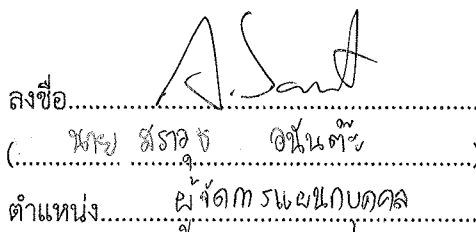 ลงชื่อ.................................................
(นาย สราวุธ อนันต๊ะ)
ตำแหน่ง ผู้จัดการแผนกบุคคล